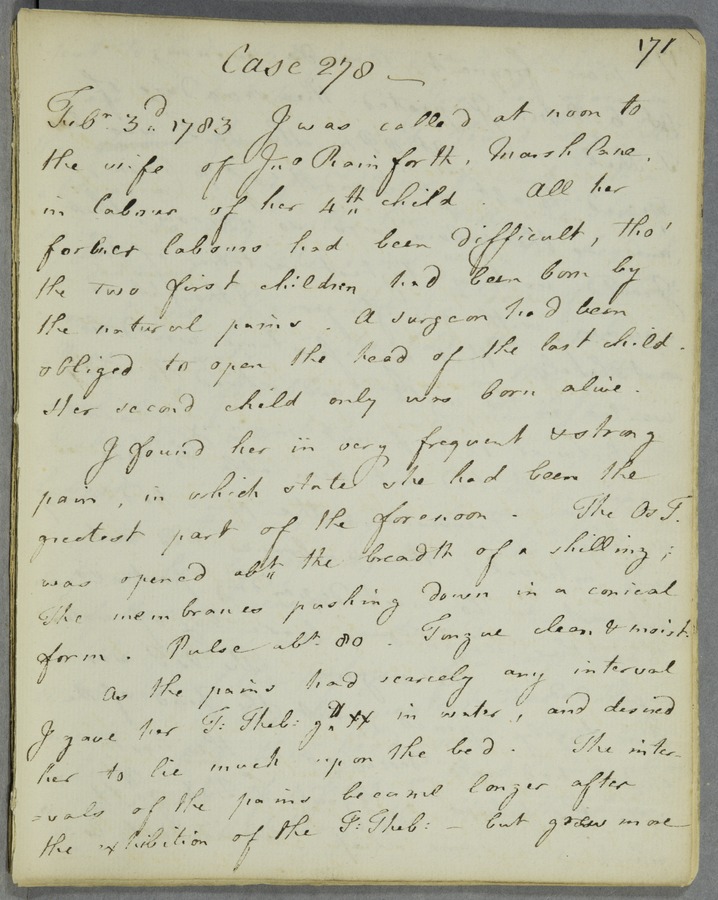 171
Case 278 —
Febr. 3d 1783 I was called at noon to
the wife of Jno Rainforth, Marsh Lane,
in labour of her 4th child. All her
former labours had been difficult, tho'
the two first children had been born by
the natural pains. A surgeon had been
obliged to open the head of the last child.
Her second child only was born alive.
I found her in very frequent & strong
pain, in which state she had been the
greatest part of the forenoon. The Os T.
was opened abt. the breadth of a shilling;
The membranes pushing down in a conical
form. Pulse abt. 80. Tongue clean & moist.
As the pains had scarcely any interval
I gave her T: Theb: gtt xx in water, and desired
her to lie much upon the bed. The inter-
=vals of the pains became longer after
the exhibition of the T: Theb: — but grew more